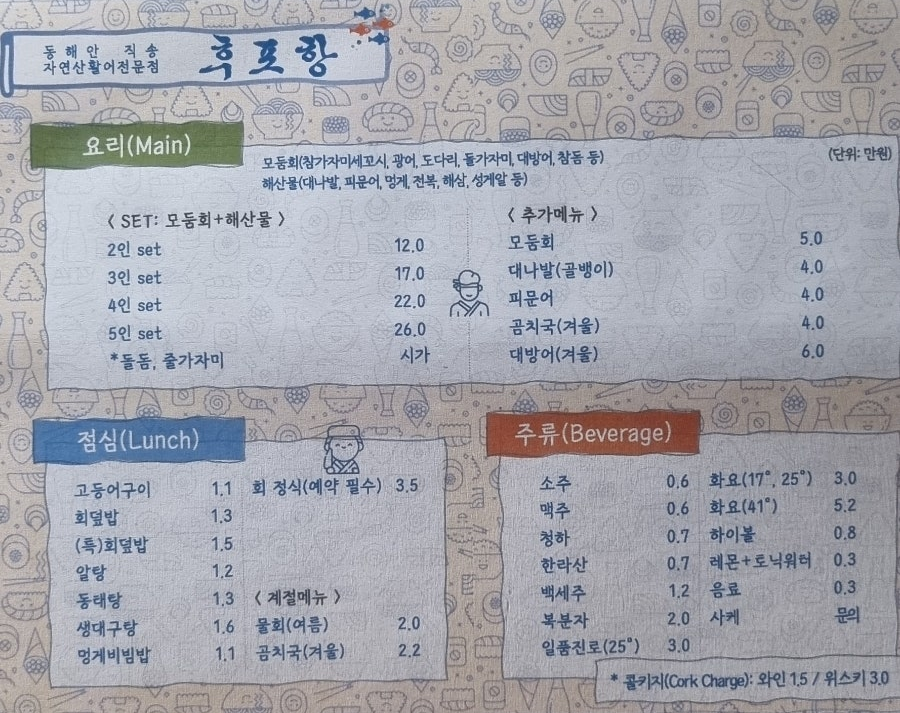 동해안 직송
자연산활어전문점
후포항
요리(Main)
모둠회(참가자미세꼬시, 광어, 도다리, 돌가자미, 대방어, 참돔 등)
해산물(대나발, 피문어, 멍게, 전복, 해삼, 성게알 등)
(단위: 만원)
< SET: 모둠회+해산물 >
2인 set 12.0
3인 set 17.0
4인 set 22.0
5인 set 26.0
*돌돔, 줄가자미 시가
< 추가메뉴 >
모둠회 5.0
대나발(골뱅이) 4.0
피문어 4.0
곰치국(겨울) 4.0
대방어(겨울) 6.0
점심(Lunch)
고등어구이 1.1
회덮밥 1.3
(특)회덮밥 1.5
알탕 1.2
동태탕 1.3
생대구탕 1.6
멍게비빔밥 1.1
회 정식(예약 필수) 3.5
< 계절메뉴 >
물회(여름) 2.0
곰치국(겨울) 2.2
주류(Beverage)
소주 0.6
맥주 0.6
청하 0.7
한라산 0.7
백세주 1.2
복분자 2.0
일품진로(25°) 3.0
화요(17°, 25°) 3.0
화요(41°) 5.2
하이볼 0.8
레몬+토닉워터 0.3
음료 0.3
사케 문의
* 콜키지(Cork Charge): 와인 1.5 / 위스키 3.0